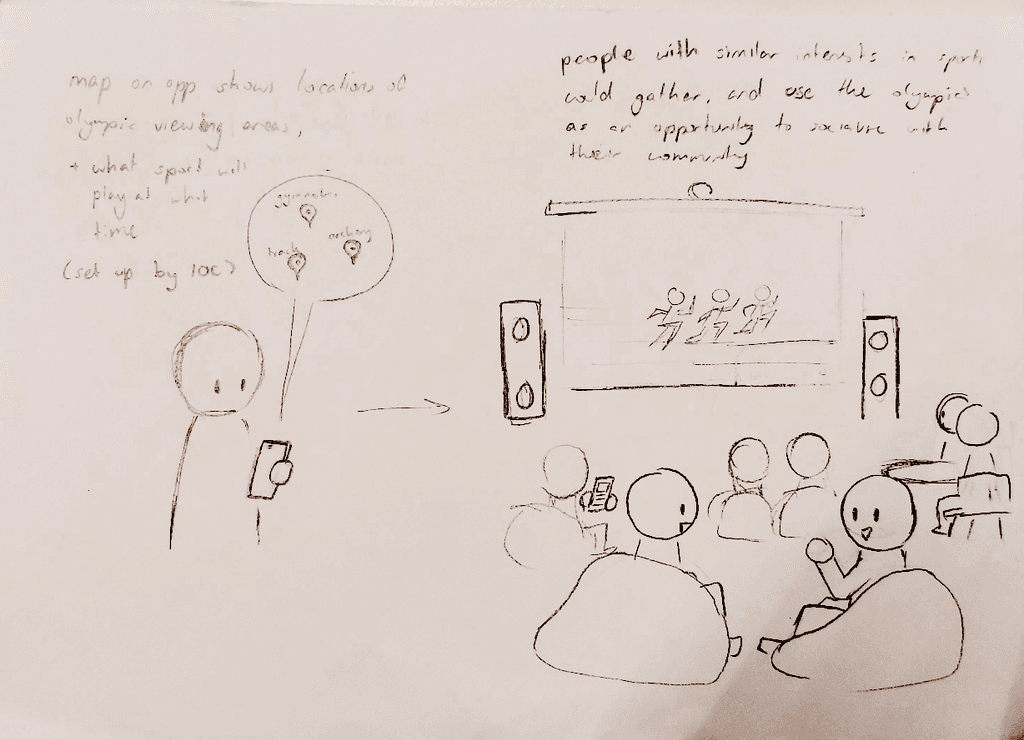 map on app shows locations of
olympic viewing areas,
+ what sport will
play at what
time
(set up by IOC)
gymnastics
archery
track
people with similar interests in sports
could gather, and use the olympics
as an opportunity to socialise with
their community